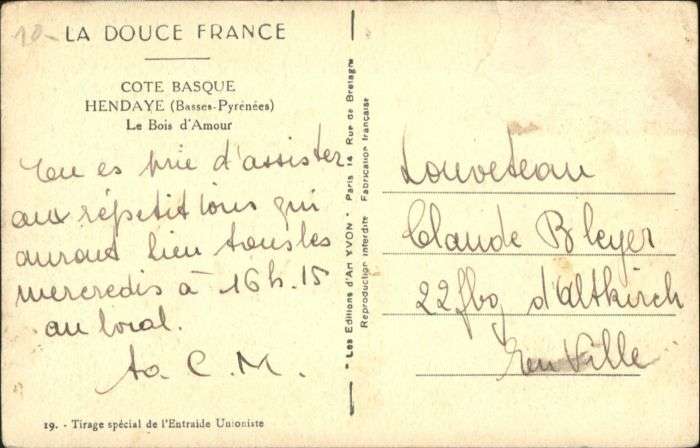 10-
LA DOUCE FRANCE
COTE BASQUE
HENDAYE (Basses-Pyrénées)
Le Bois d'Amour
Tu es prié d'assister
aux répétitions qui
auront lieu tous les
mercredis à 16h.15
au local.
ta C.M.
19. - Tirage spécial de l'Entraide Unioniste
"Les Editions d'Art YVON" Paris 14 Rue de Bretagne
Reproduction interdite Fabrication française
Louveteau
Claude Bleyer
22 fbg d'Altkirch
En Ville